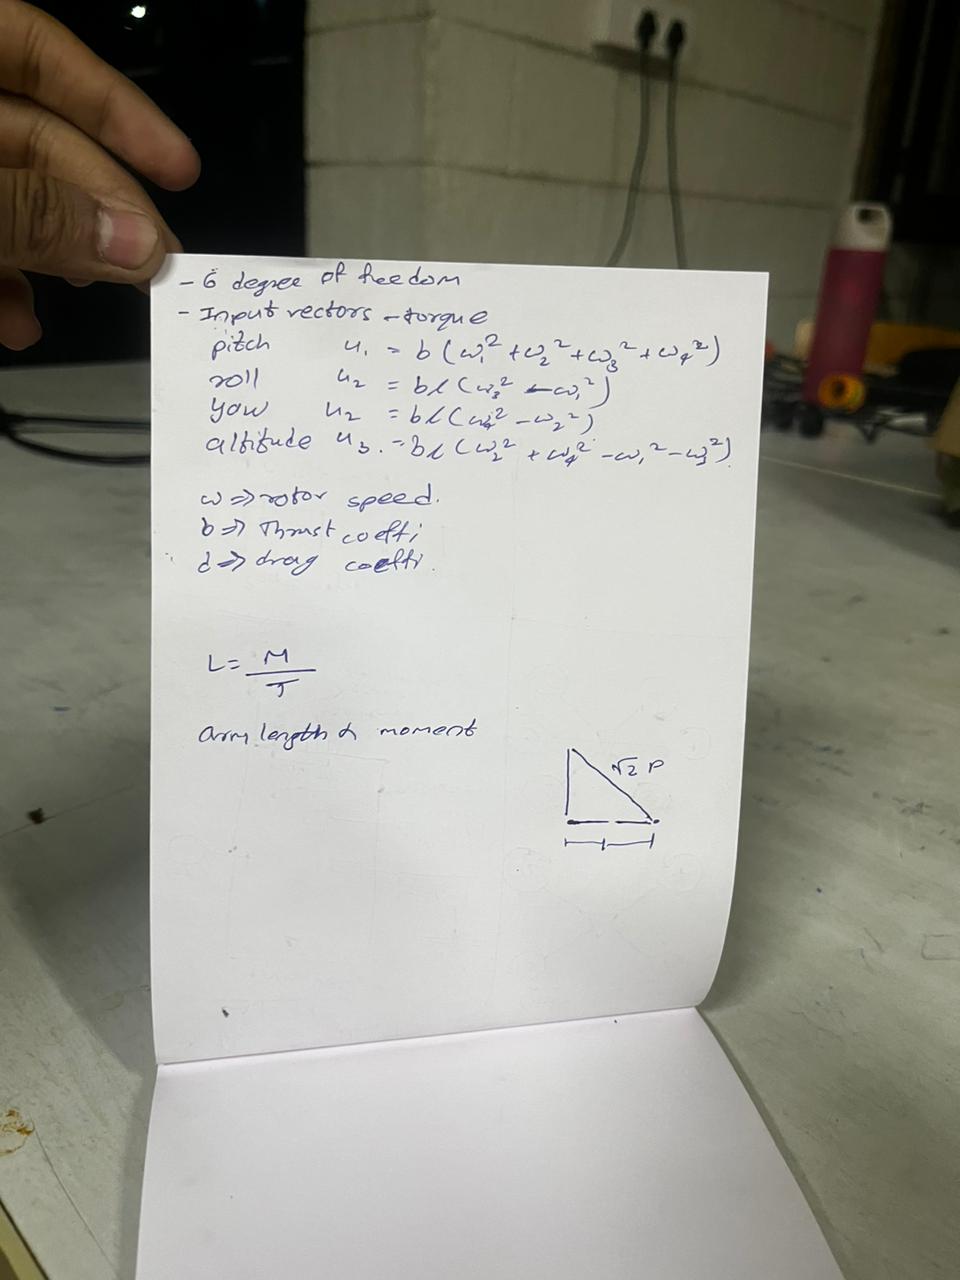 - 6 degree of freedom
- Input vectors - torque
pitch u₁ = b (ω₁² + ω₂² + ω₃² + ω₄²)
roll u₂ = bl (ω₃² - ω₁²)
yaw u₂ = bl (ω₄² - ω₂²)
altitude u₃. = bl (ω₂² + ω₄² - ω₁² - ω₃²)
ω => rotor speed.
b => Thrust coeffi
d => drag coeffi.
L = M
T
arm length & moment
√2 P